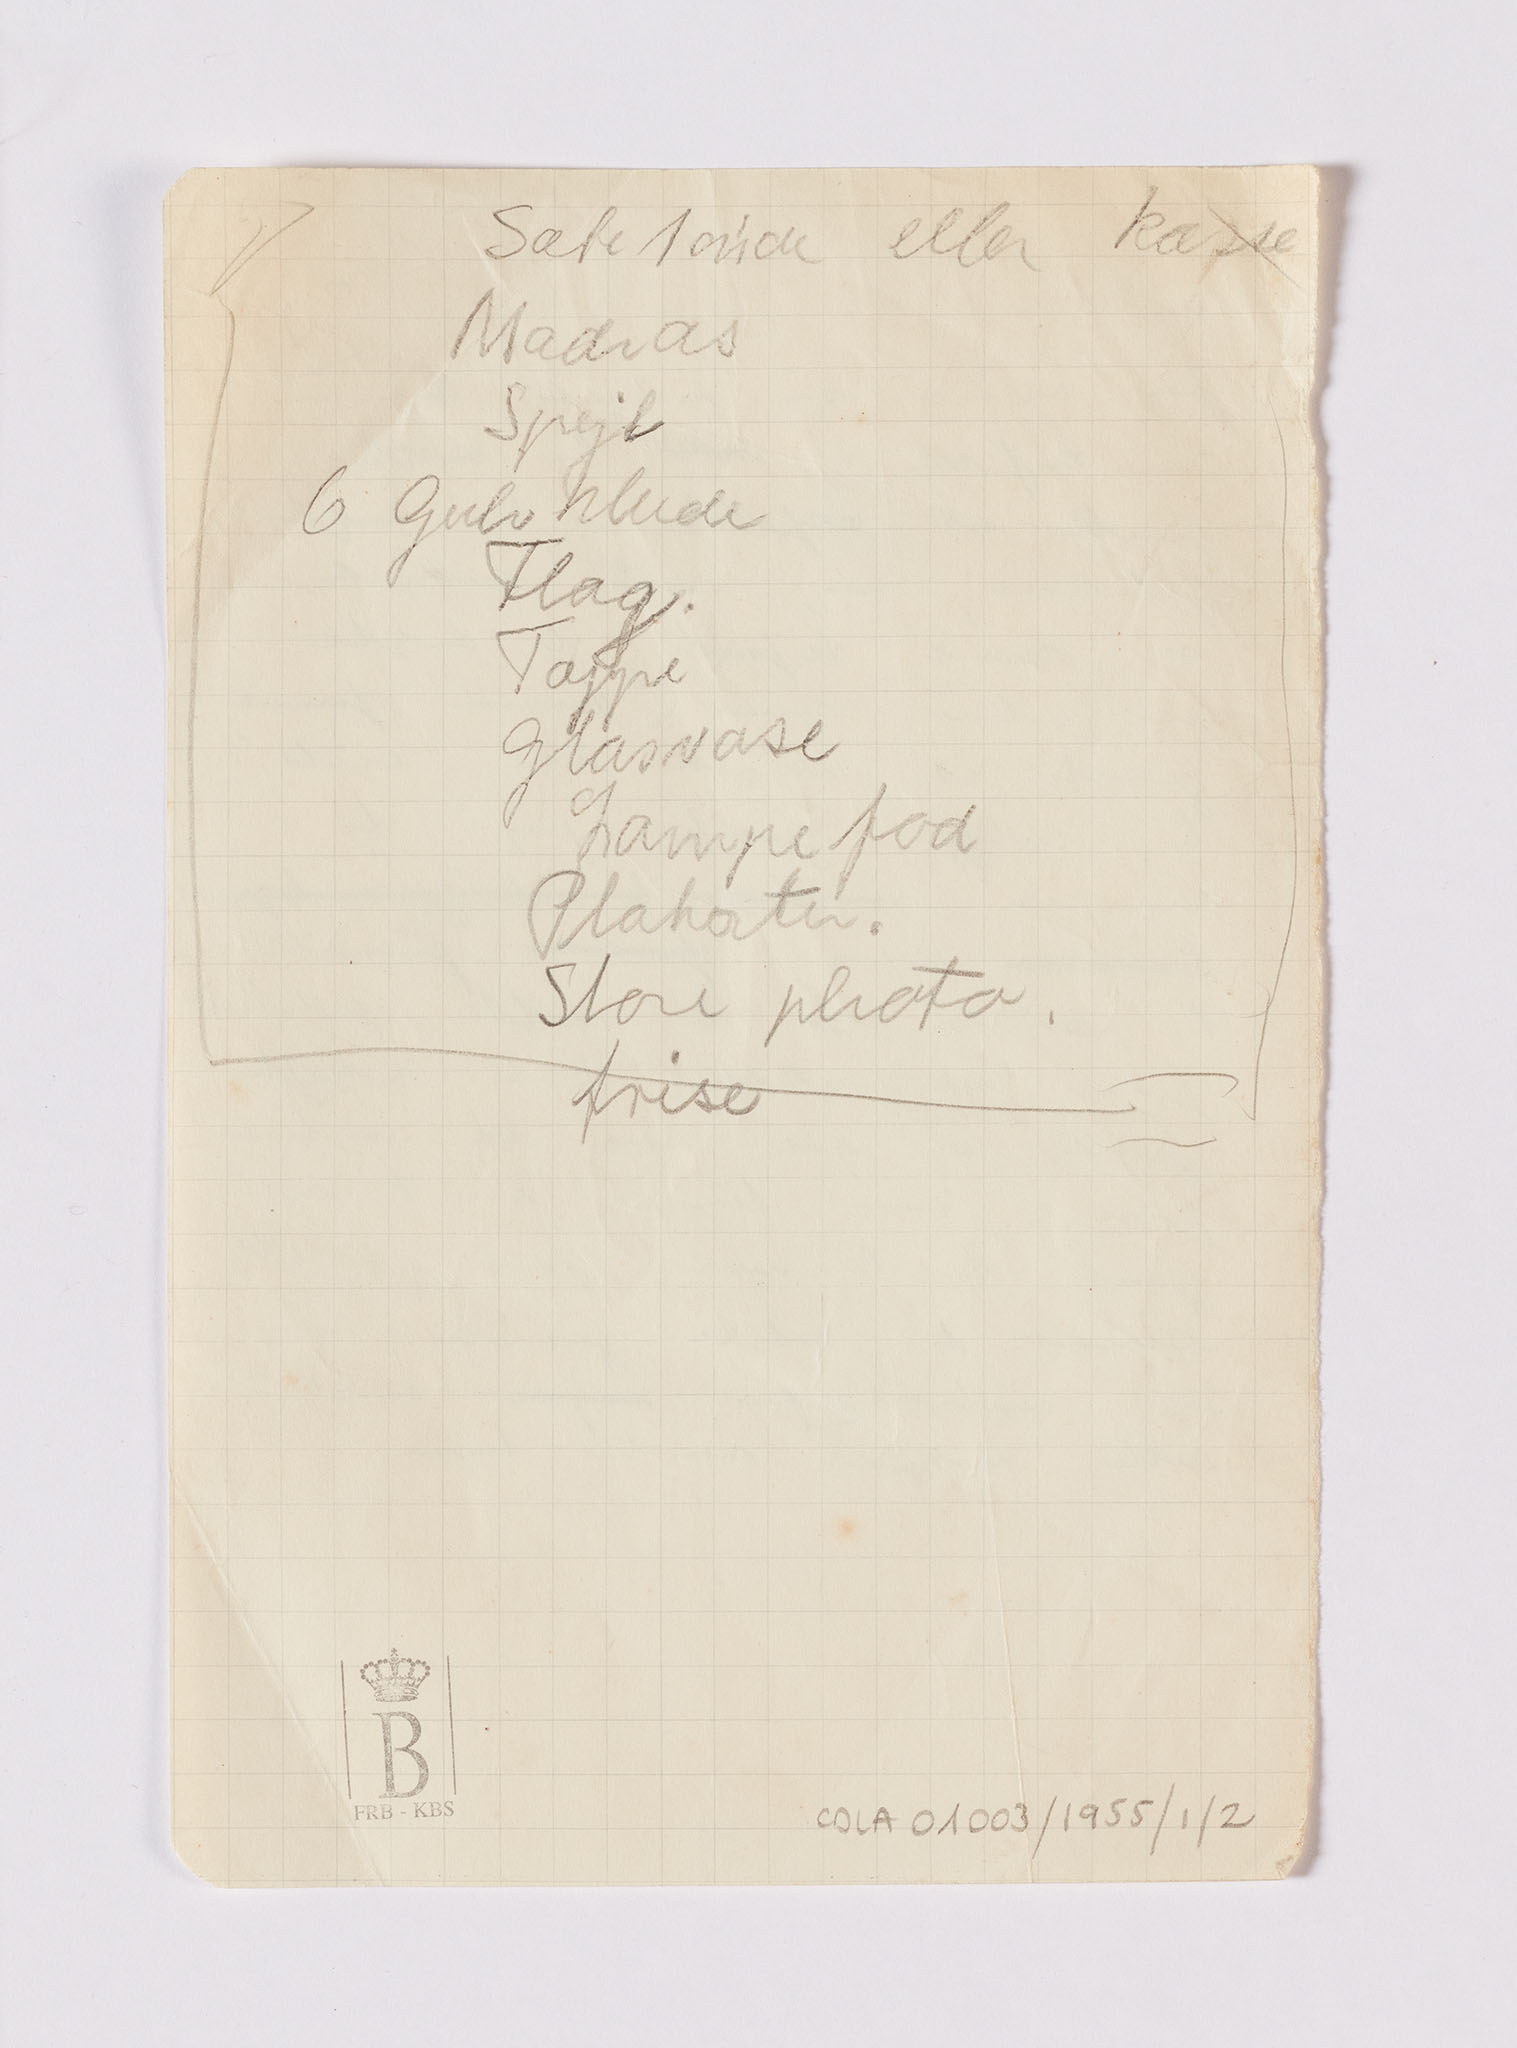 eller kasse
Madras
Spejl
6 Gulvklude
Flag.
Tæppe
Glasvase
Lampe fod
Plakater.
Store photo.
frise
B
FRB - KBS
CDLA 01003/1955/1/2